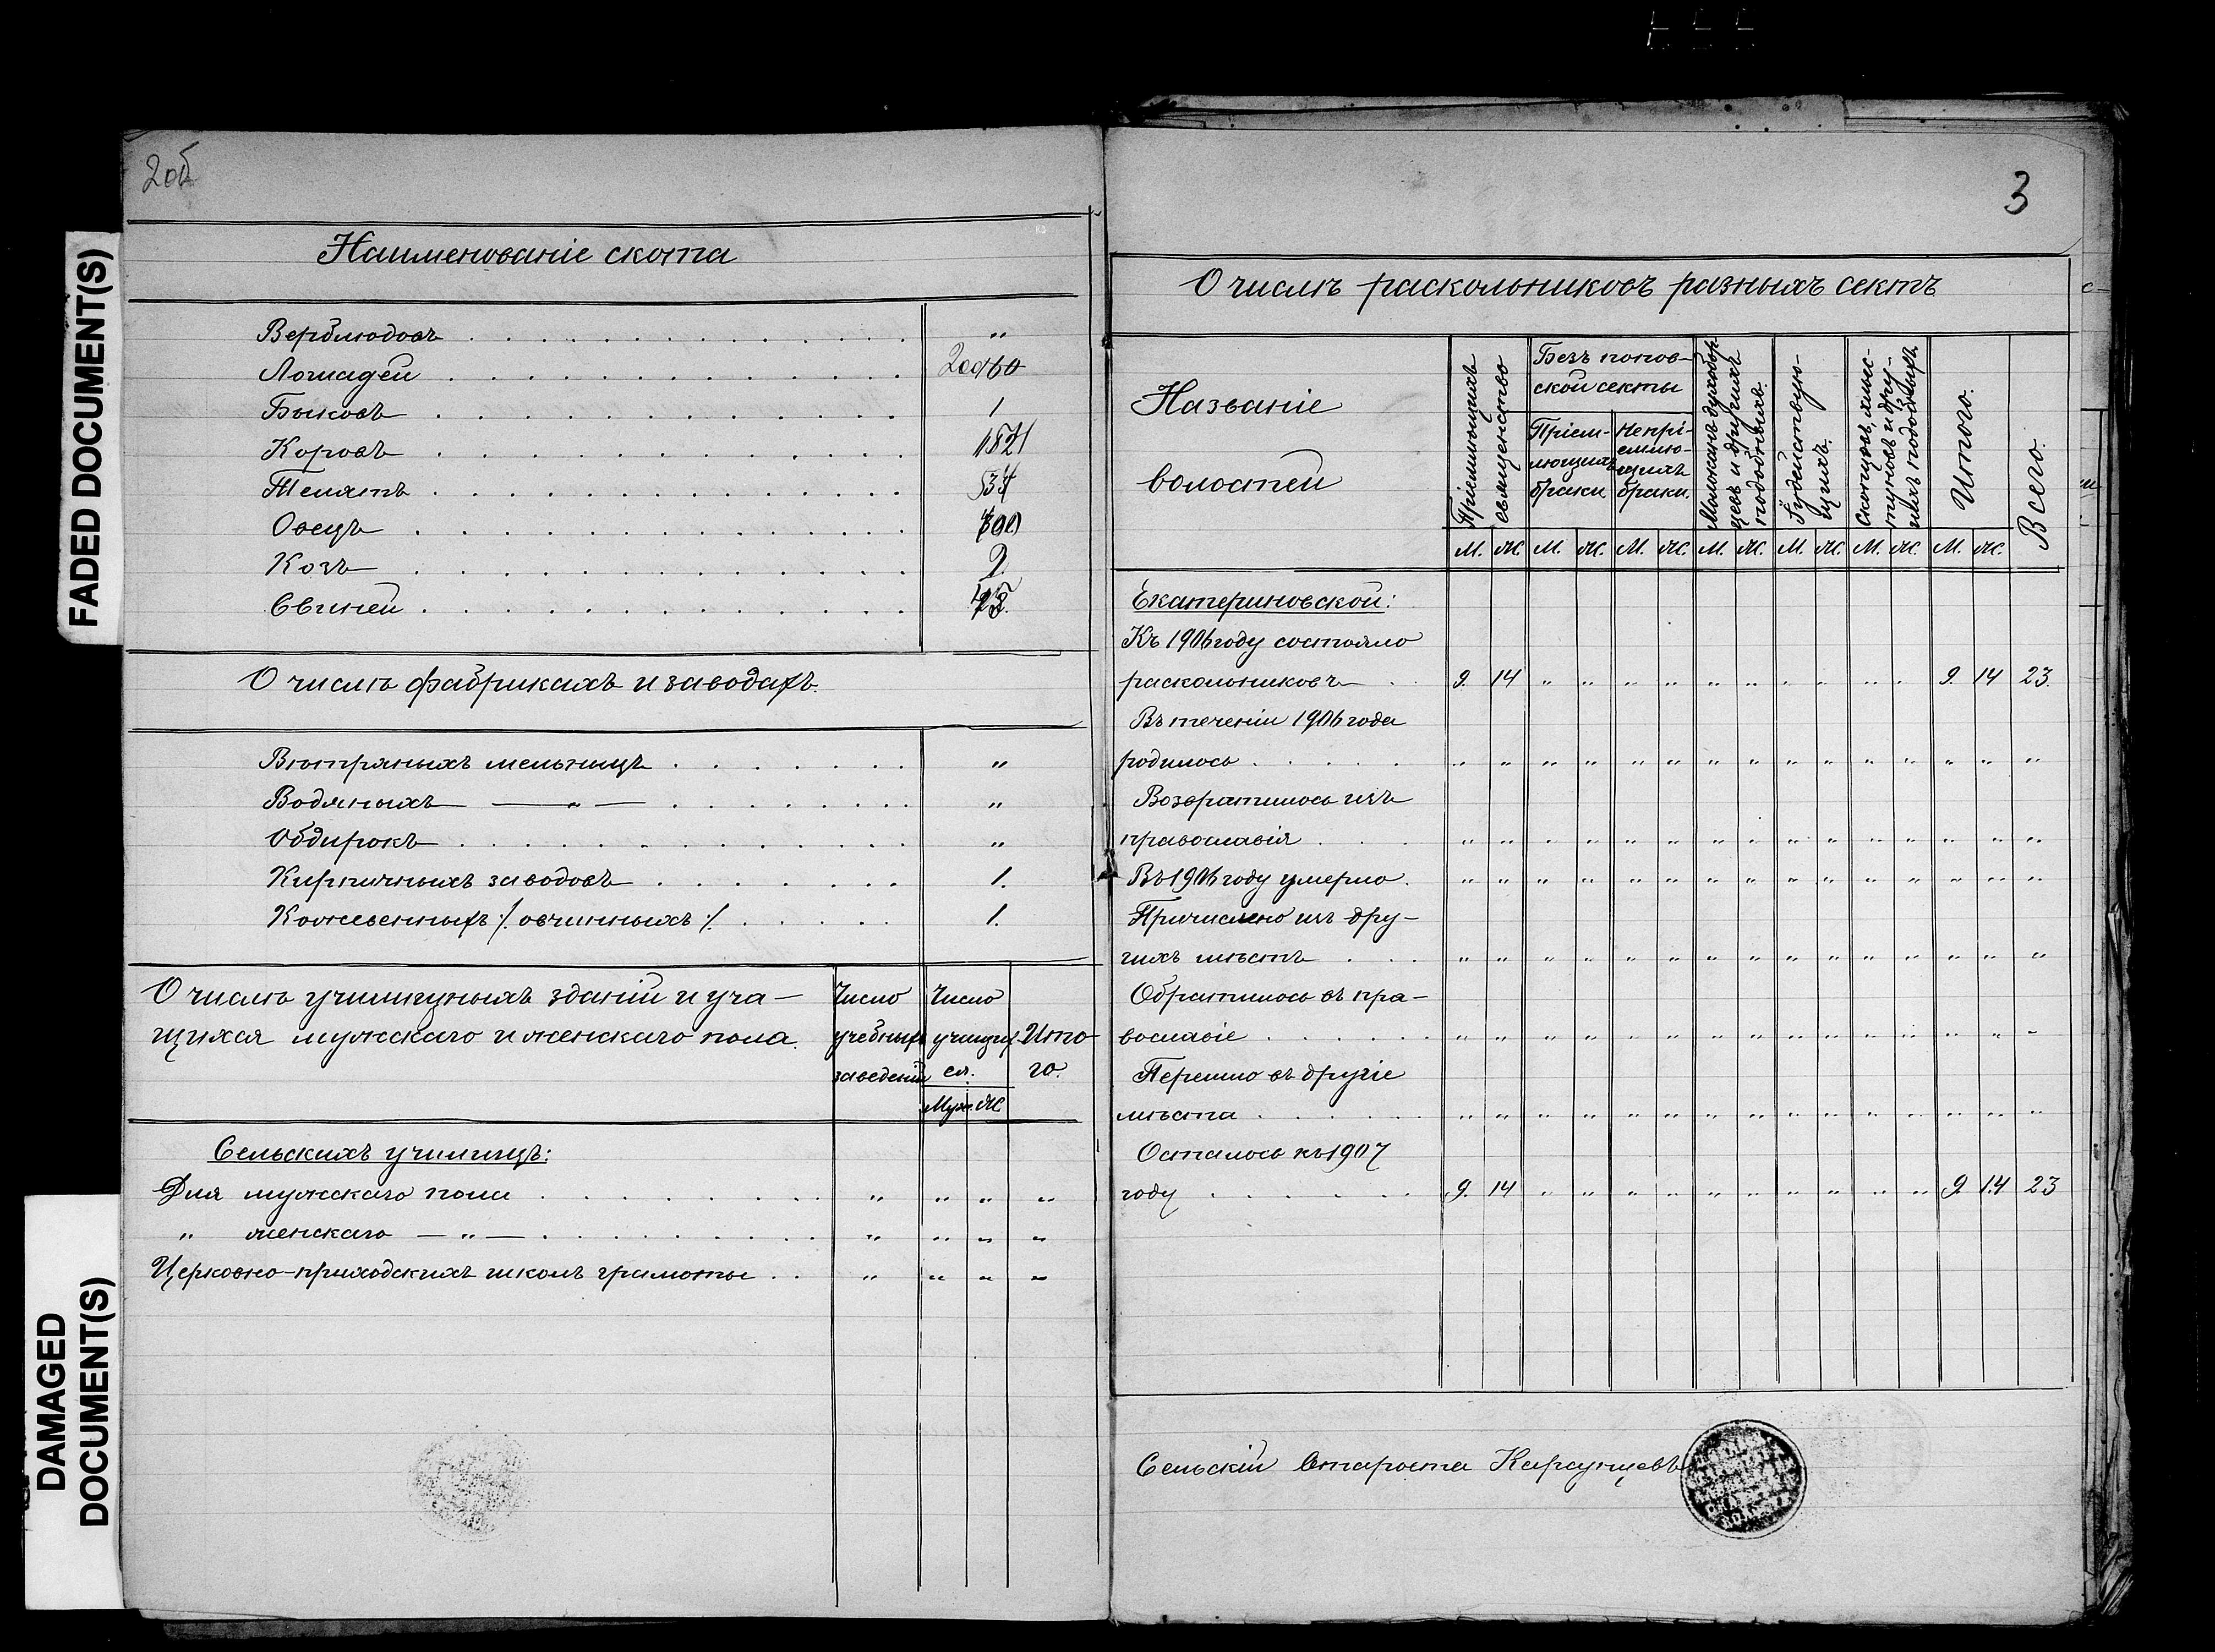 2об
Наименованіе скота
Верблюдовъ . . . . . . . . . . . . "
Лошадей . . . . . . . . . . . .
Быковъ . . . . . . . . . . . . 1
Коровъ . . . . . . . . . . . .
Телятъ . . . . . . . . . . . .
Овецъ . . . . . . . . . . . .
Козъ . . . . . . . . . . . . 2
Свиней . . . . . . . . . . . .
О числѣ фабрикахъ и заводахъ.
Вѣтряныхъ мельницъ . . . . . . . "
Водяныхъ — " — . . . . . . . "
Обдирокъ . . . . . . . . . . . "
Кирпичныхъ заводовъ . . . . . . . 1.
Кожевенныхъ ⁒ овчинныхъ ⁒ . . . . . 1.
О числѣ училищныхъ зданій и уча-
щихся мужскаго и женскаго пола.
Число учебныхъ заведеній
Число учащихся.
Муж. Ж.
Итого.
Сельскихъ училищъ:
Для мужскаго пола . . . . . . . . " " " "
" женскаго — " — . . . . . . . . " " " "
Церковно-приходскихъ школъ грамоты . . " " " "
FADED DOCUMENT(S)
DAMAGED
DOCUMENT(S)
3
О числѣ раскольниковъ разныхъ сектъ
Названіе
волостей
Пріемлющихъ
священство
Безъ попов-
ской секты
Пріем-
лющихъ
браки
Непрі-
емлю-
щихъ
браки.
Молоканъ духобор-
цевъ и другихъ
подобныхъ.
Іудействую-
щихъ.
Скопцовъ, хлыс-
туновъ и дру-
гихъ подобныхъ.
Итого.
Всего.
М. Ж. М. Ж. М. Ж. М. Ж. М. Ж. М. Ж. М. Ж.
Екатериновской:
Къ 1906 году состояло
раскольниковъ . . 9. 14 " " " " " " " " " " 9. 14 23.
Въ теченіи 1906 года
родилось . . . . . " " " " " " " " " " " " " " "
Возвратилось изъ
православія . . . " " " " " " " " " " " " " " "
Въ 1906 году умерло . " " " " " " " " " " " " " " "
Причислено изъ дру-
гихъ мѣстъ . . . " " " " " " " " " " " " " " "
Обратилось въ пра-
вославіе . . . . . " " " " " " " " " " " " " " "
Перешло въ другіе
мѣста . . . . . " " " " " " " " " " " " " " "
Осталось къ 1907
году . . . . . . 9. 14 " " " " " " " " " " 9. 14 23
Сельскій Староста